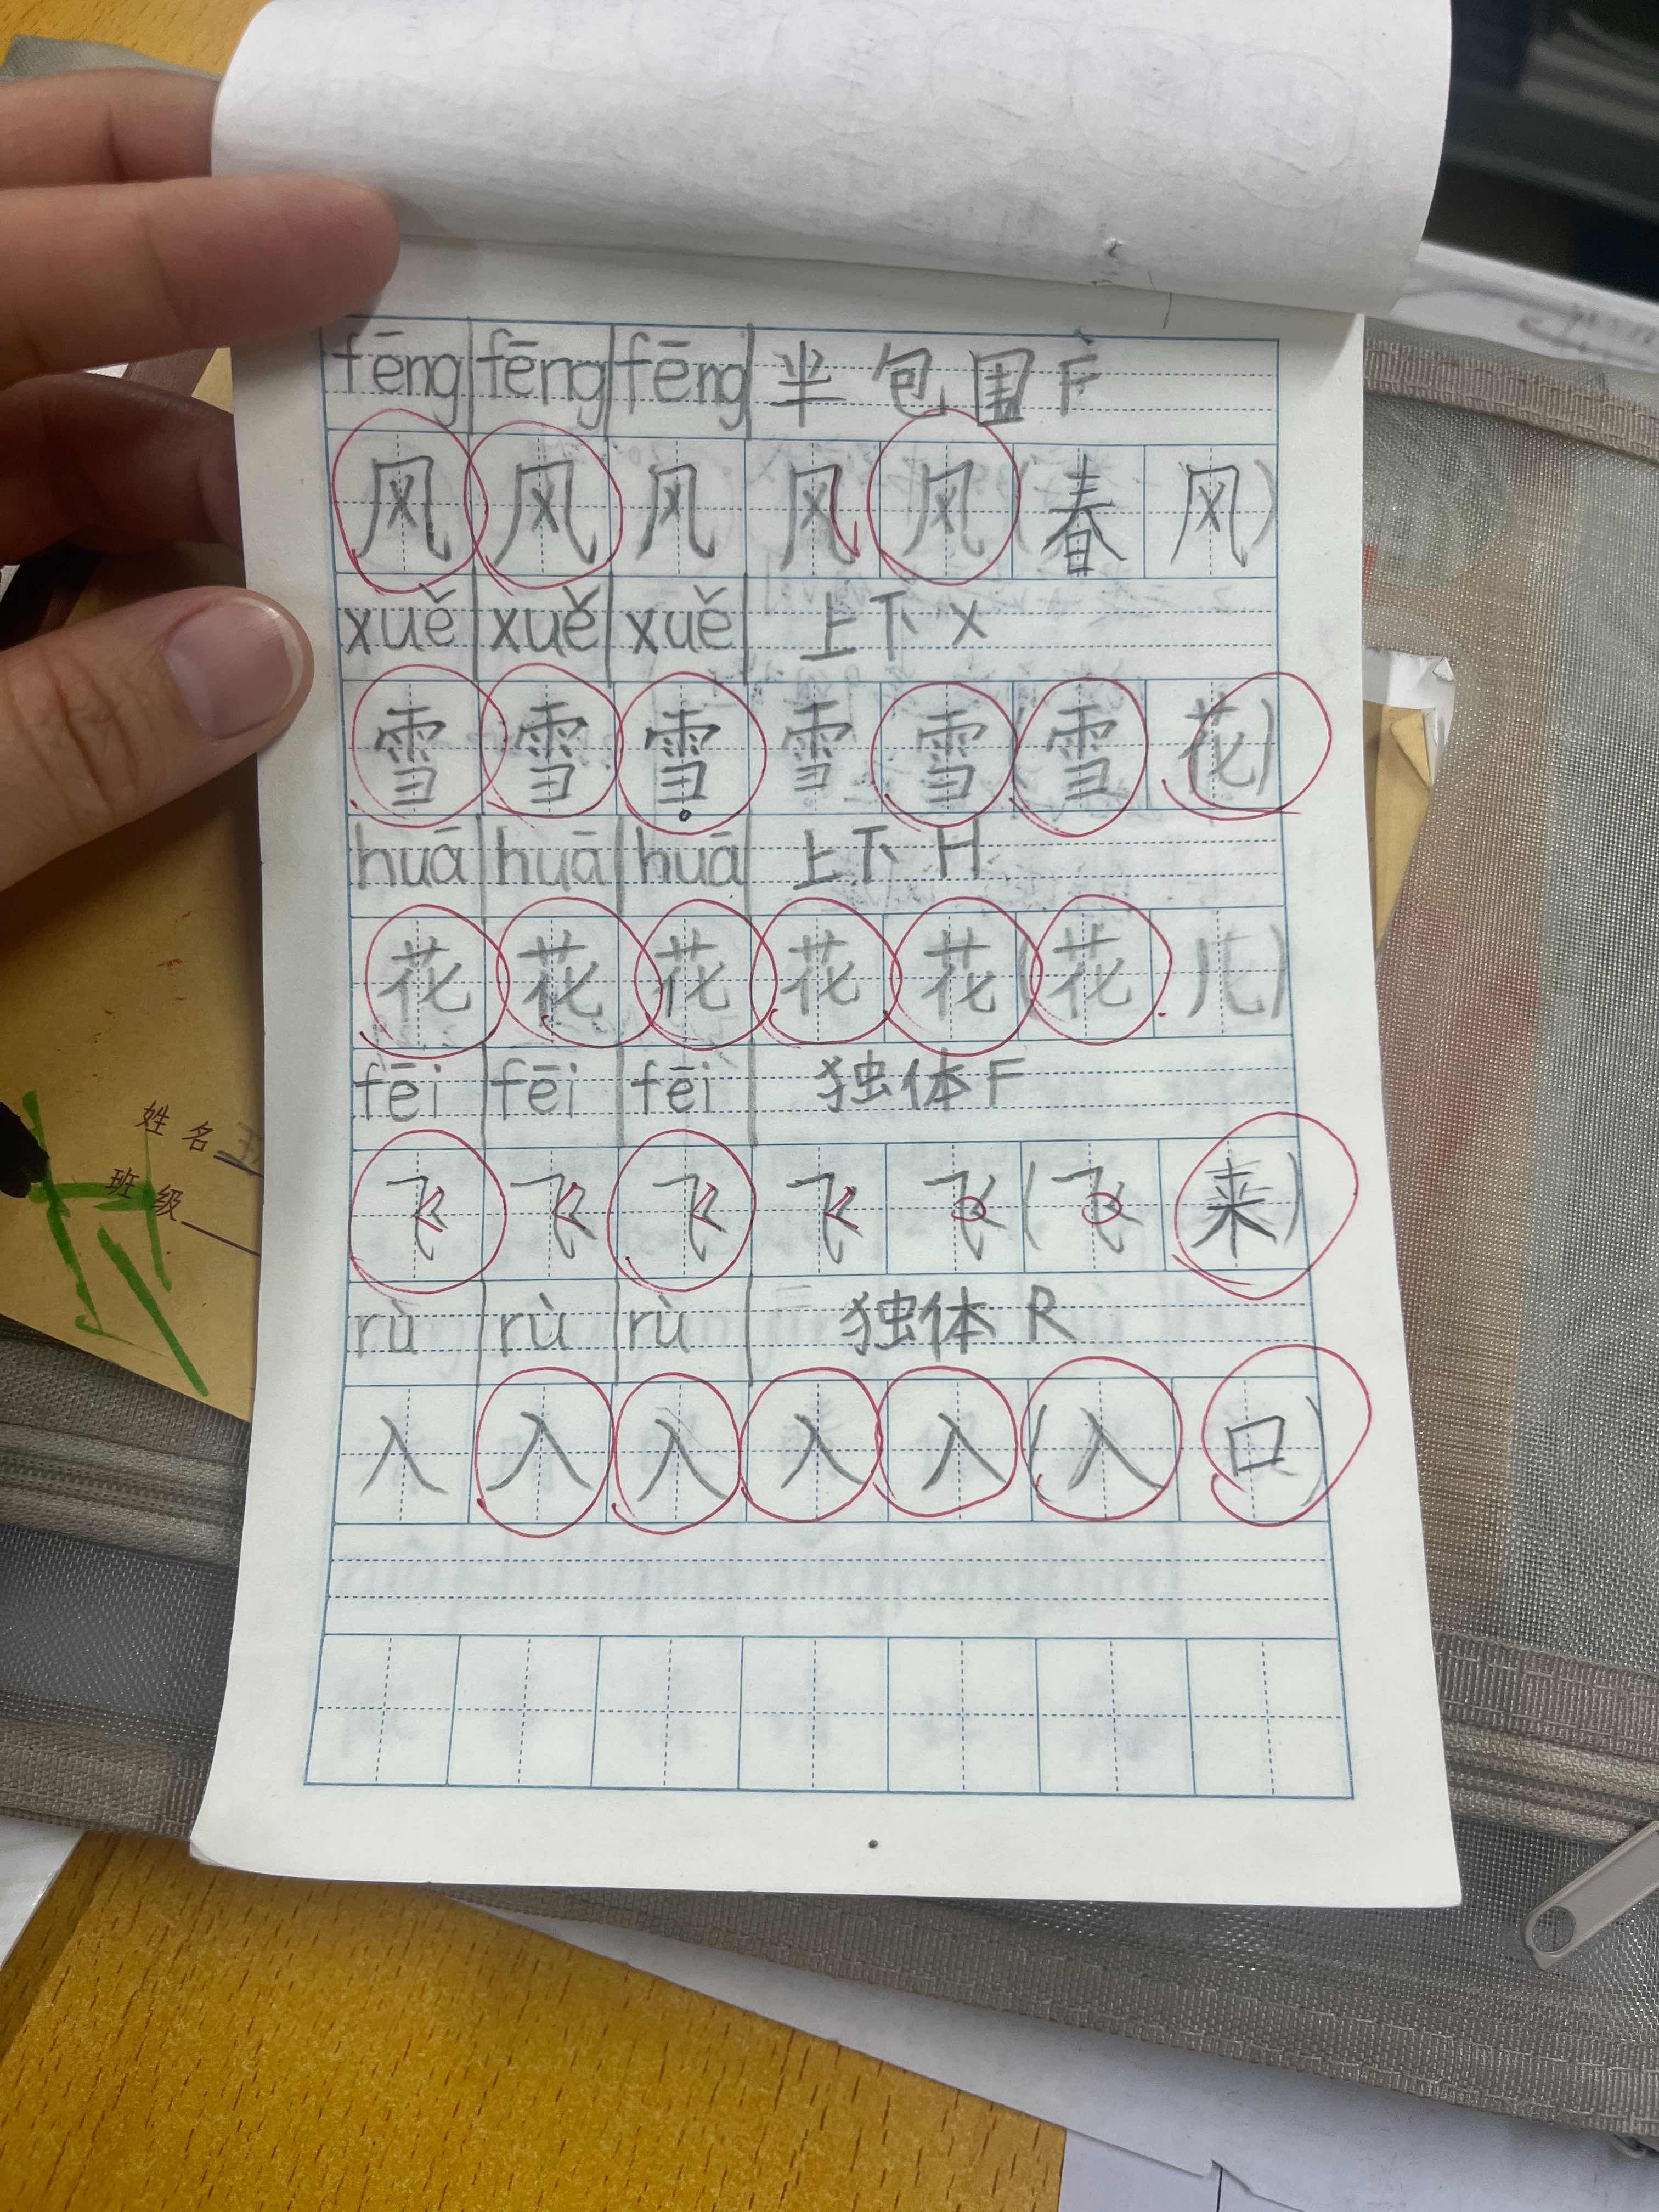 fēng fēng fēng 半包围 F
风 风 风 风 风 (春 风)
xuě xuě xuě 上下 X
雪 雪 雪 雪 雪 (雪 花)
huā huā huā 上下 H
花 花 花 花 花 (花 儿)
fēi fēi fēi 独体 F
飞 飞 飞 飞 飞 (飞 来)
rù rù rù 独体 R
入 入 入 入 入 (入 口)
姓名
班级